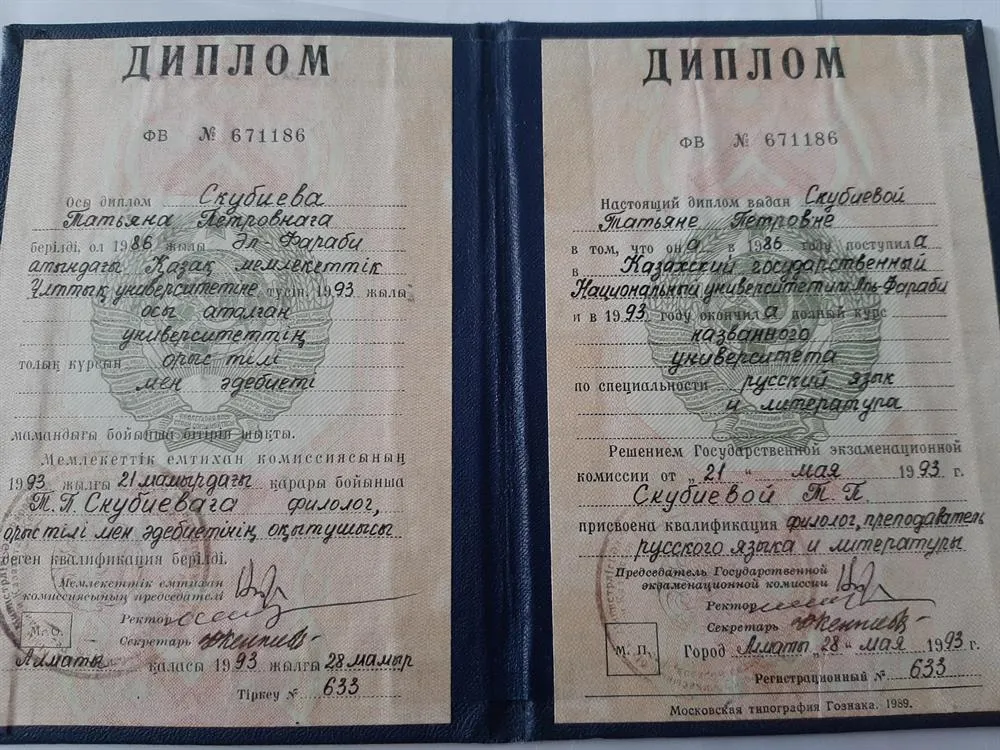 ДИПЛОМ
ФВ № 671186
Осы диплом Скубиева
Татьяна Петровнаға
берілді, ол 1986 жылы Әл Фараби
атындағы Қазақ мемлекеттік
Ұлттық университетіне түсіп, 1993 жылы
осы аталған
университеттің
толық курсын орыс тілі
мен әдебиеті
мамандығы бойынша бітіріп шықты.
Мемлекеттік емтихан комиссиясының
1993 жылғы 21 мамырдағы қарары бойынша
Т.П. Скубиеваға филолог,
орыс тілі мен әдебиетінің оқытушысы
деген квалификация берілді.
Мемлекеттік емтихан
комиссиясының председателі
Ректор
Секретарь
М. О.
Алматы қаласы 1993 жылғы 28 мамыр
Тіркеу № 633
ДИПЛОМ
ФВ № 671186
Настоящий диплом выдан Скубиевой
Татьяне Петровне
в том, что она в 1986 году поступила
в Казахский государственный
Национальный университет им Аль-Фараби
и в 1993 году окончила полный курс
названного
университета
по специальности русский язык
и литература
Решением Государственной экзаменационной
комиссии от „21“ мая 1993 г.
Скубиевой Т. П.
присвоена квалификация филолог, преподаватель
русского языка и литературы
Председатель Государственной
экзаменационной комиссии
Ректор
Секретарь
М. П.
Город Алматы „28“ мая 1993 г.
Регистрационный № 633
Московская типография Гознака. 1989.